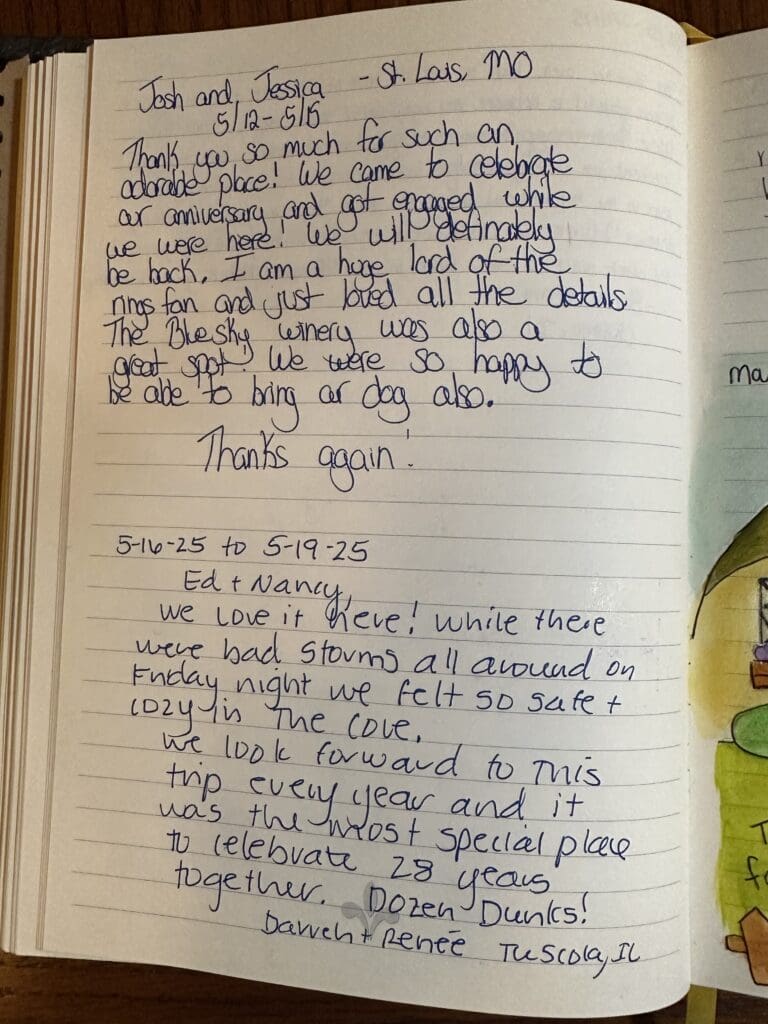 Josh and Jessica - St. Louis, MO
5/12 - 5/15
Thank you so much for such an
adorable place! We came to celebrate
our anniversary and got engaged while
we were here! We will definately
be back. I am a huge lord of the
rings fan and just loved all the details.
The Blue sky winery was also a
great spot! We were so happy to
be able to bring our dog also.
Thanks again!
5-16-25 to 5-19-25
Ed + Nancy,
We love it here! While there
were bad storms all around on
Friday night we felt so safe +
cozy in The Cove.
We look forward to This
trip every year and it
was the most special place
to celebrate 28 years
together. Dozen Dunks!
Darren + Renée Tuscola, IL
ma
T
fo